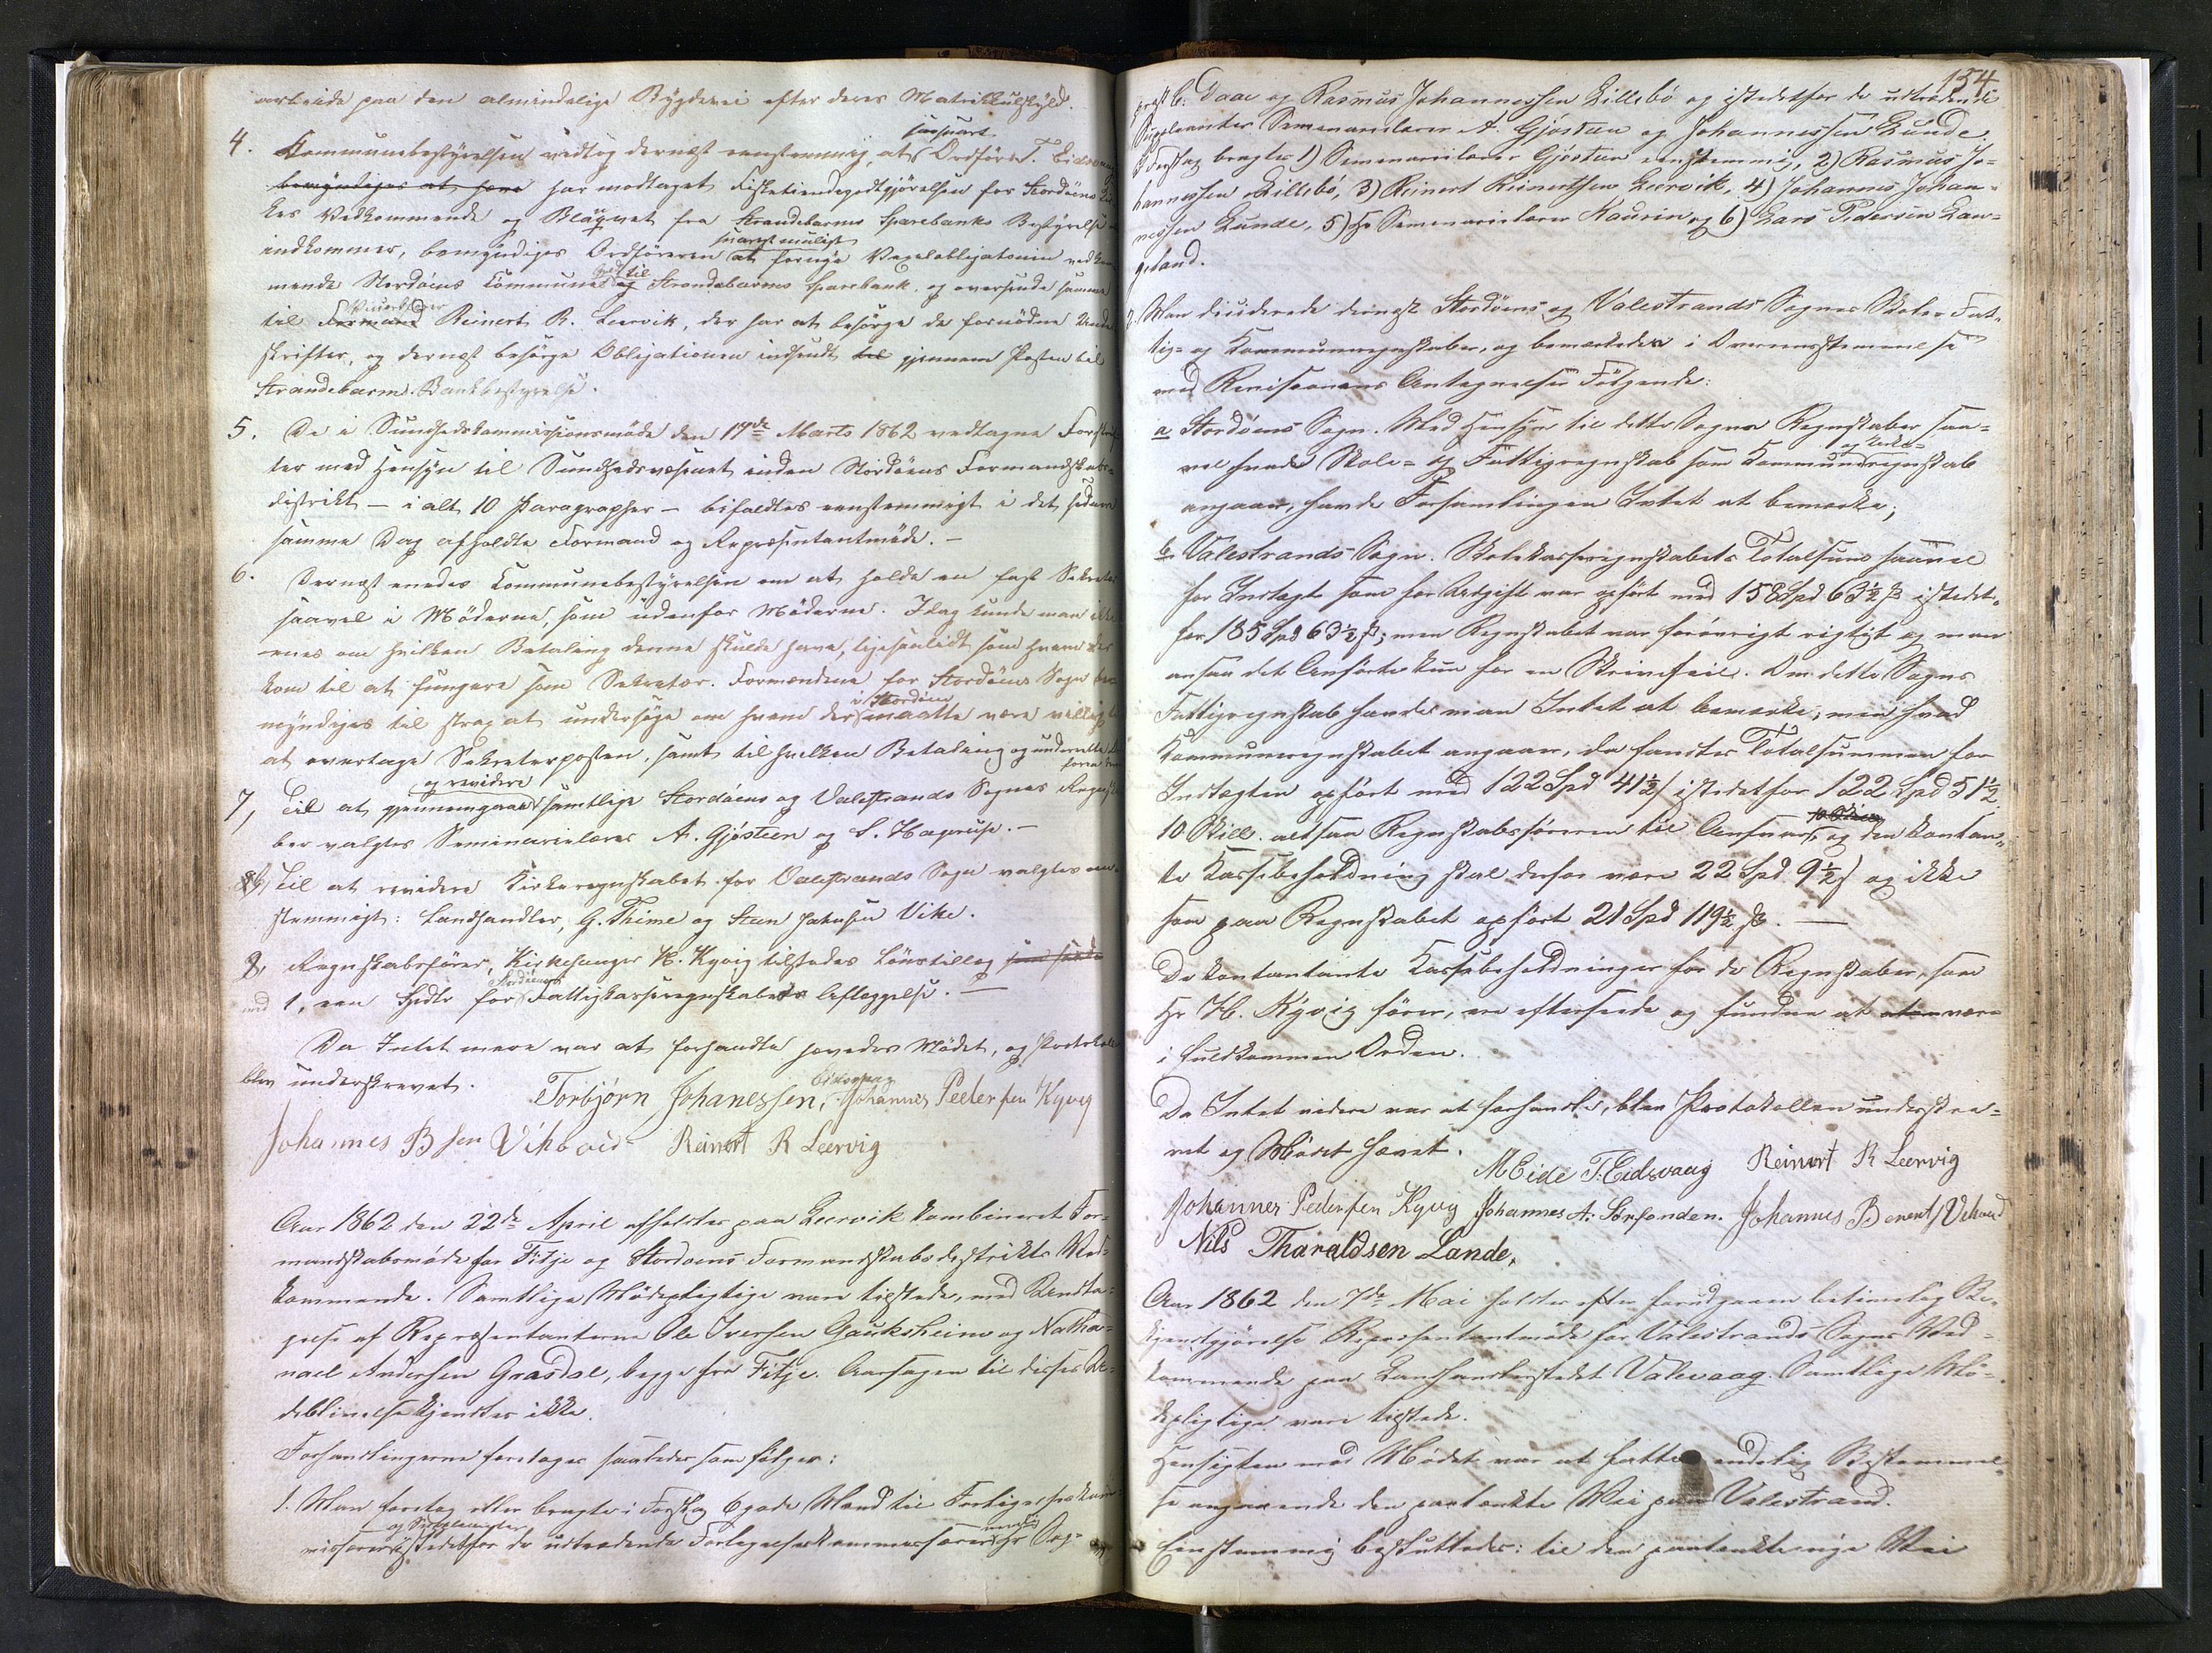 arbeide paa den almindelige Bygdevei efter deres Matrikkulskyld.
4. Kommunebestyrelsen vedtog dernæst eenstemmig, at saasnart Ordfører T. Eidsvaag
bemyndiges at have har modtaget Fisketiendegodtgjørelsen for Stordøens
kes Vedkommende og Blanqvet fra Strandebarms Sparebanks Bestyrelse
indkommer, bemyndiges Ordføreren snarest muligt at fornye Vexelobligationen vedkom
mende Stordøens Kommunes Gjeld til og Strandebarms Sparebank, og oversende samme
til Formand Reinert R. Leervik, der har at besørge de fornødne Under
skrifter, og dernæst besørge Obligationen indsendt til gjennem Posten til
Strandebarms Bankbestyrelse.
5. De i Sundhedskommissionsmøde den 17de Marts 1862 vedtagne Forskrif
ter med Hensyn til Sundhedsvæsenet inden Stordøens Formandskabs
distrikt – i alt 10 Paragrapher – bifaldtes eenstemmigt i det sidste
samme Dag afholdte Formand og Repræsentantmøde. –
6. Dernæst enedes Kommunebestyrelsen om at holde en fast Sekretær
saavel i Møderne, som udenfor Møderne. Idag kunde man ikke
enes om hvilken Betaling denne skulde have, ligesaalidt som hvem der
kom til at fungere som Sekretær. Formændene for Stordøens Sogn be-
myndiges til strax at undersøge om hvem der i Stordøen maatte være villig
at overtage Sekretærposten, samt til hvilken Betaling og underrette
7, Til at gjennemgaae og revidere samtlige Stordøens og Valestrands Sognes Regnska
ber valgtes Seminarielærer A. Gjøsteen og S. Hagerup. –
Til at revidere Kirkeregnskabet for Valestrands Sogn valgtes een-
stemmigt: Landhandler, G. Thime og Sten Jakobsen Vike.
8, Regnskabsfører, Kirkesanger H. Kyvig tilstodes Lønstillæg
med 1, een Spdlr for Stordøens Fattigkasseregnskabets Aflæggelse. –
Da Intet mere var at forhandle hævedes Mødet, og Protokollen
blev underskrevet.
Torbjørn Johanessen, Eidsvaag Johannes Pedersen Kyvig
Johannes B sen Vikovei Reinert R Leervig
Aar 1862 den 22de April afholdtes paa Leervik kombineret For-
mandskabsmøde for Fitje og Stordøens Formandskabsdistrikts Ved-
kommende. Samtlige Mødepligtige vare tilstede, med Undta-
gelse af Repræsentanterne Ole Iversen Gauksheim og Natha-
nael Andersen Graasdal, begge fra Fitje. Aarsagen til disses Ude-
deblivelse kjendtes ikke.
Forhandlingerne foretoges saaledes som følger:
1. Man foretog eller bragte i Forslag 6 gode Mænd til Forligelseskom-
missærer og Suppleanter istedetfor de udtrædende Forligelseskommissærer nemlig Hr Prog-
154
prest C. Daae og Rasmus Johannessen Lillebø og istedetfor de udtrædende
Suppleanter Seminarielærer A. Gjøsteen og Johannessen Lunde.
I Forslag bragtes 1) Seminarielærer Gjøsteen eenstemmig, 2) Rasmus Jo-
hannessen Lillebø, 3) Reinert Reinertsen Leervik, 4) Johannes Johan-
nessen Lunde, 5) Hr Seminarielærer Kaurin og 6) Lars Pedersen Lan-
geland.
2. Man deciderede dernæst Stordøens og Valestrands Sognes Skole- Fat-
tig- og Kommuneregnskaber, og bemærkedes i Overensstemmelse
med Revisionens Antegnelser Følgende:
a Stordøens Sogn. Med Hensyn til dette Sogns Regnskaber, saa-
vel hvad Skole- og Fattigregnskab som Kommune og Kirkeregnskab
angaar, havde Forsamlingen Intet at bemærke;
b Valestrands Sogn. Skolekasseregnskabets Totalsum saavel
for Indtægt som for Udgift var opført med 158 Spd 63½ ß istedet-
for 185 Spd 63½ ß; men Regnskabet var forøvrigt rigtigt og man
ansaa det Anførte kun for en Skrivefeil. Om dette Sogns
Fattigregnskab havde man Intet at bemærke, men hvad
Kommuneregnskabet angaar, da fandtes Totalsummen for
Indtægten opført med 122 Spd 41½ ß istedetfor 122 Spd 51½.
10 Skill. altsaa Regnskabsføreren til Ansvar, og den kontan-
te Kassebeholdning skal derfor være 22 Spd 9½ ß og ikke
som paa Regnskabet opført 21 Spd 119½ ß. –
De kontante Kassebeholdninger for de Regnskaber, som
Hr H. Kyvig fører, ere efterseede og fundne at være
i fuldkommen Orden.
Da Intet videre var at forhandle, blev Protokollen underskre-
vet og Mødet hævet.
M Eide T. Eidsvaag Reinert R Leervig
Johannes Pedersen Kyvig Johannes A. Sørhonden. Johannes Berent Vikoved
Nils Tharaldsen Lande.
Aar 1862 den 7de Mai holdtes efter forudgaaen betimelig Be-
kjendtgjørelse Repræsentantmøde for Valestrands Sogns Ved-
kommende paa Landhandlerstedet Valevaag. Samtlige Mø-
depligtige vare tilstede.
Hensigten med Mødet var at fatte endelig Bestemmel-
se angaaende den paatænkte Vei paa Valestrand.
Eenstemmig besluttedes: til den paatænkte nye Vei